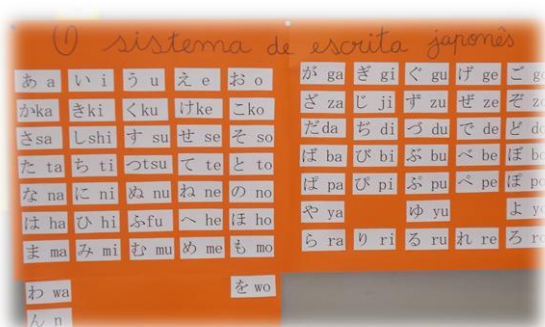 O sistema de escrita japonês
あ a い i う u え e お o
か ka き ki く ku け ke こ ko
さ sa し shi す su せ se そ so
た ta ち ti つ tsu て te と to
な na に ni ぬ nu ね ne の no
は ha ひ hi ふ fu へ he ほ ho
ま ma み mi む mu め me も mo
わ wa を wo
ん n
が ga ぎ gi ぐ gu げ ge ご go
ざ za じ ji ず zu ぜ ze ぞ
だ da ぢ di づ du で de ど
ば ba び bi ぶ bu べ be ぼ
ぱ pa ぴ pi ぷ pu ぺ pe ぽ
や ya ゆ yu よ
ら ra り ri る ru れ re ろ